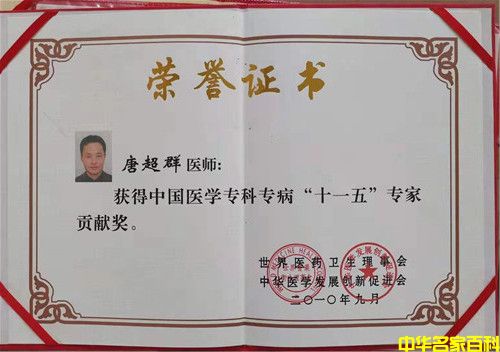 荣誉证书
唐超群 医师:
获得中国医学专科专病“十一五”专家
贡献奖。
世界医药卫生理事会
中华医学发展创新促进会
二〇一〇年九月
中华名家百科